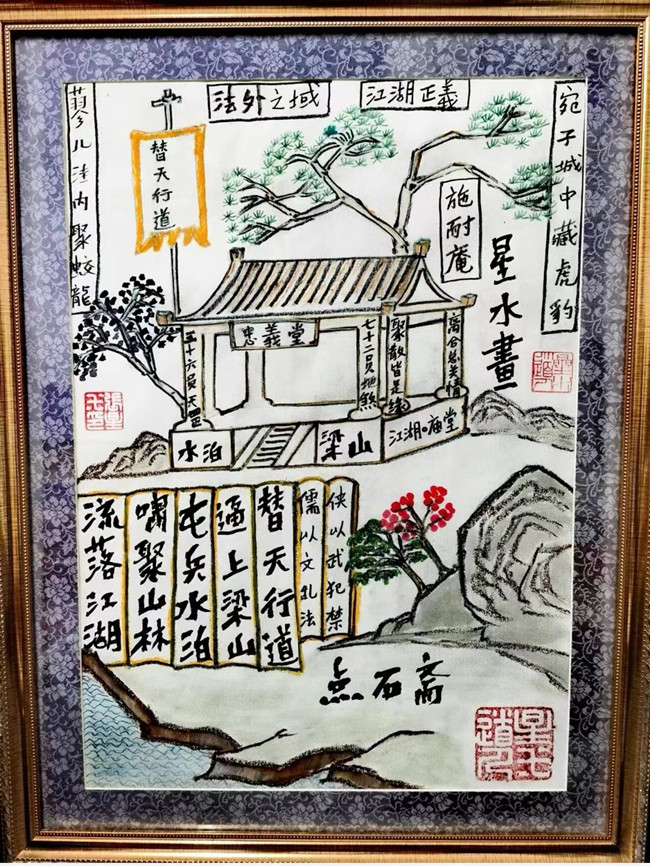 法外之域
江湖正義
宛子城中藏虎豹
蓼儿洼内聚蛟龍
替天行道
施耐庵
星水畫
忠義堂
三十六员天罡
七十二员地煞
聚散皆是缘
离合总关情
水泊
梁山
江湖·庙堂
侠以武犯禁
儒以文乱法
替天行道
逼上梁山
屯兵水泊
嘯聚山林
流落江湖
点石斋